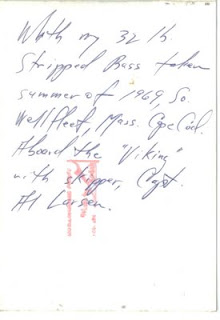 With my 32 lb.
Stripped Bass taken
summer of 1969, So.
Wellfleet, Mass. Cape Cod.
Aboard the "Viking"
with skipper, Capt.
Al Larsen.